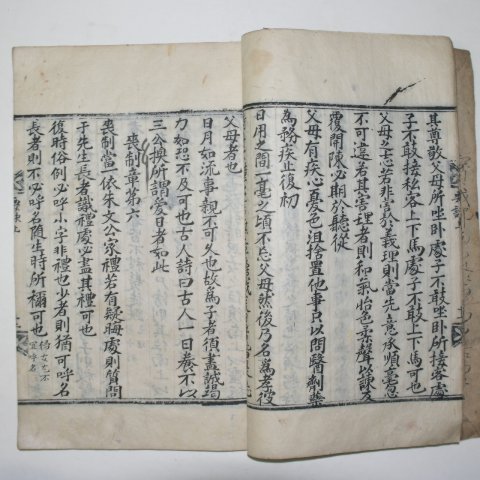 其尊敬父母所坐臥處子不敢坐臥所接客處
子不敢接私客上下馬處子不敢上下馬可也
父母之志若非害於義理則當先意承順毫忽
不可違若其害理者則和氣怡色柔聲以諫反
覆開陳必期於聽從
父母有疾心憂色沮捨置他事只以問醫劑藥
爲務疾止復初
日用之間一毫之頃不忘父母然後乃名爲孝彼
父母者也
日月如流事親不可久也故爲子者須盡誠竭
力如恐不及可也古人詩曰古人一日養不以
三公換所謂愛日者如此
喪制章第六
喪制當一依朱文公家禮若有疑晦處則質問
于先生長者識禮處必盡其禮可也
復時俗例必呼小字非禮也少者則猶可呼名
長者則不必呼名隨生時所稱可也
婦女尤不
宜呼名